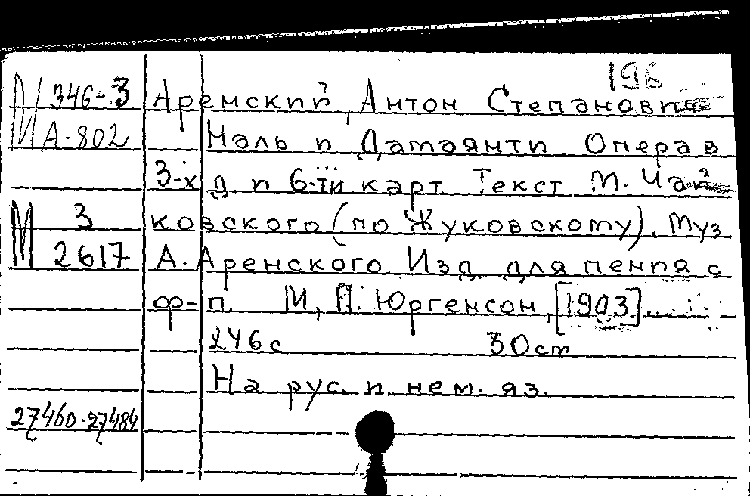 196
М 346-3 Аренский, Антон Степанович
А-802 Наль и Дамаянти Опера в
3-х д и 6-ти карт Текст М. Чай
М 3 ковского (по Жуковскому). Муз
2617 А. Аренского Изд для пения с
ф-п. М, П. Юргенсон, [1903]
246 с 30 см
На рус. и нем. яз.
27460-27484